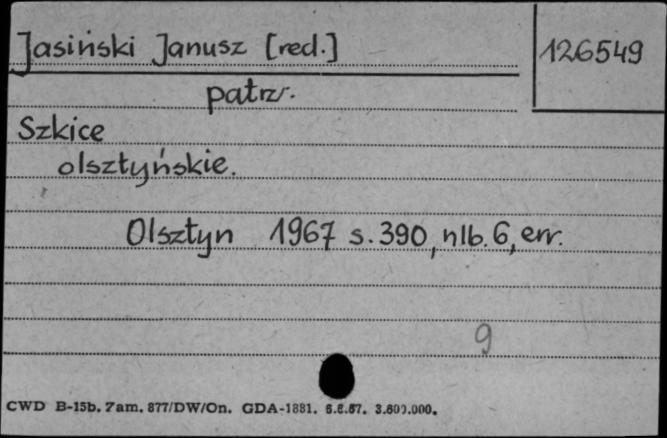 Jasiński Janusz [red.]
126549
patrz.
Szkice
olsztyńskie.
Olsztyn 1967 s. 390, nlb. 6, err.
9
CWD B-15b. Zam. 877/DW/On. GDA-1881. 6.6.67. 3.600.000.